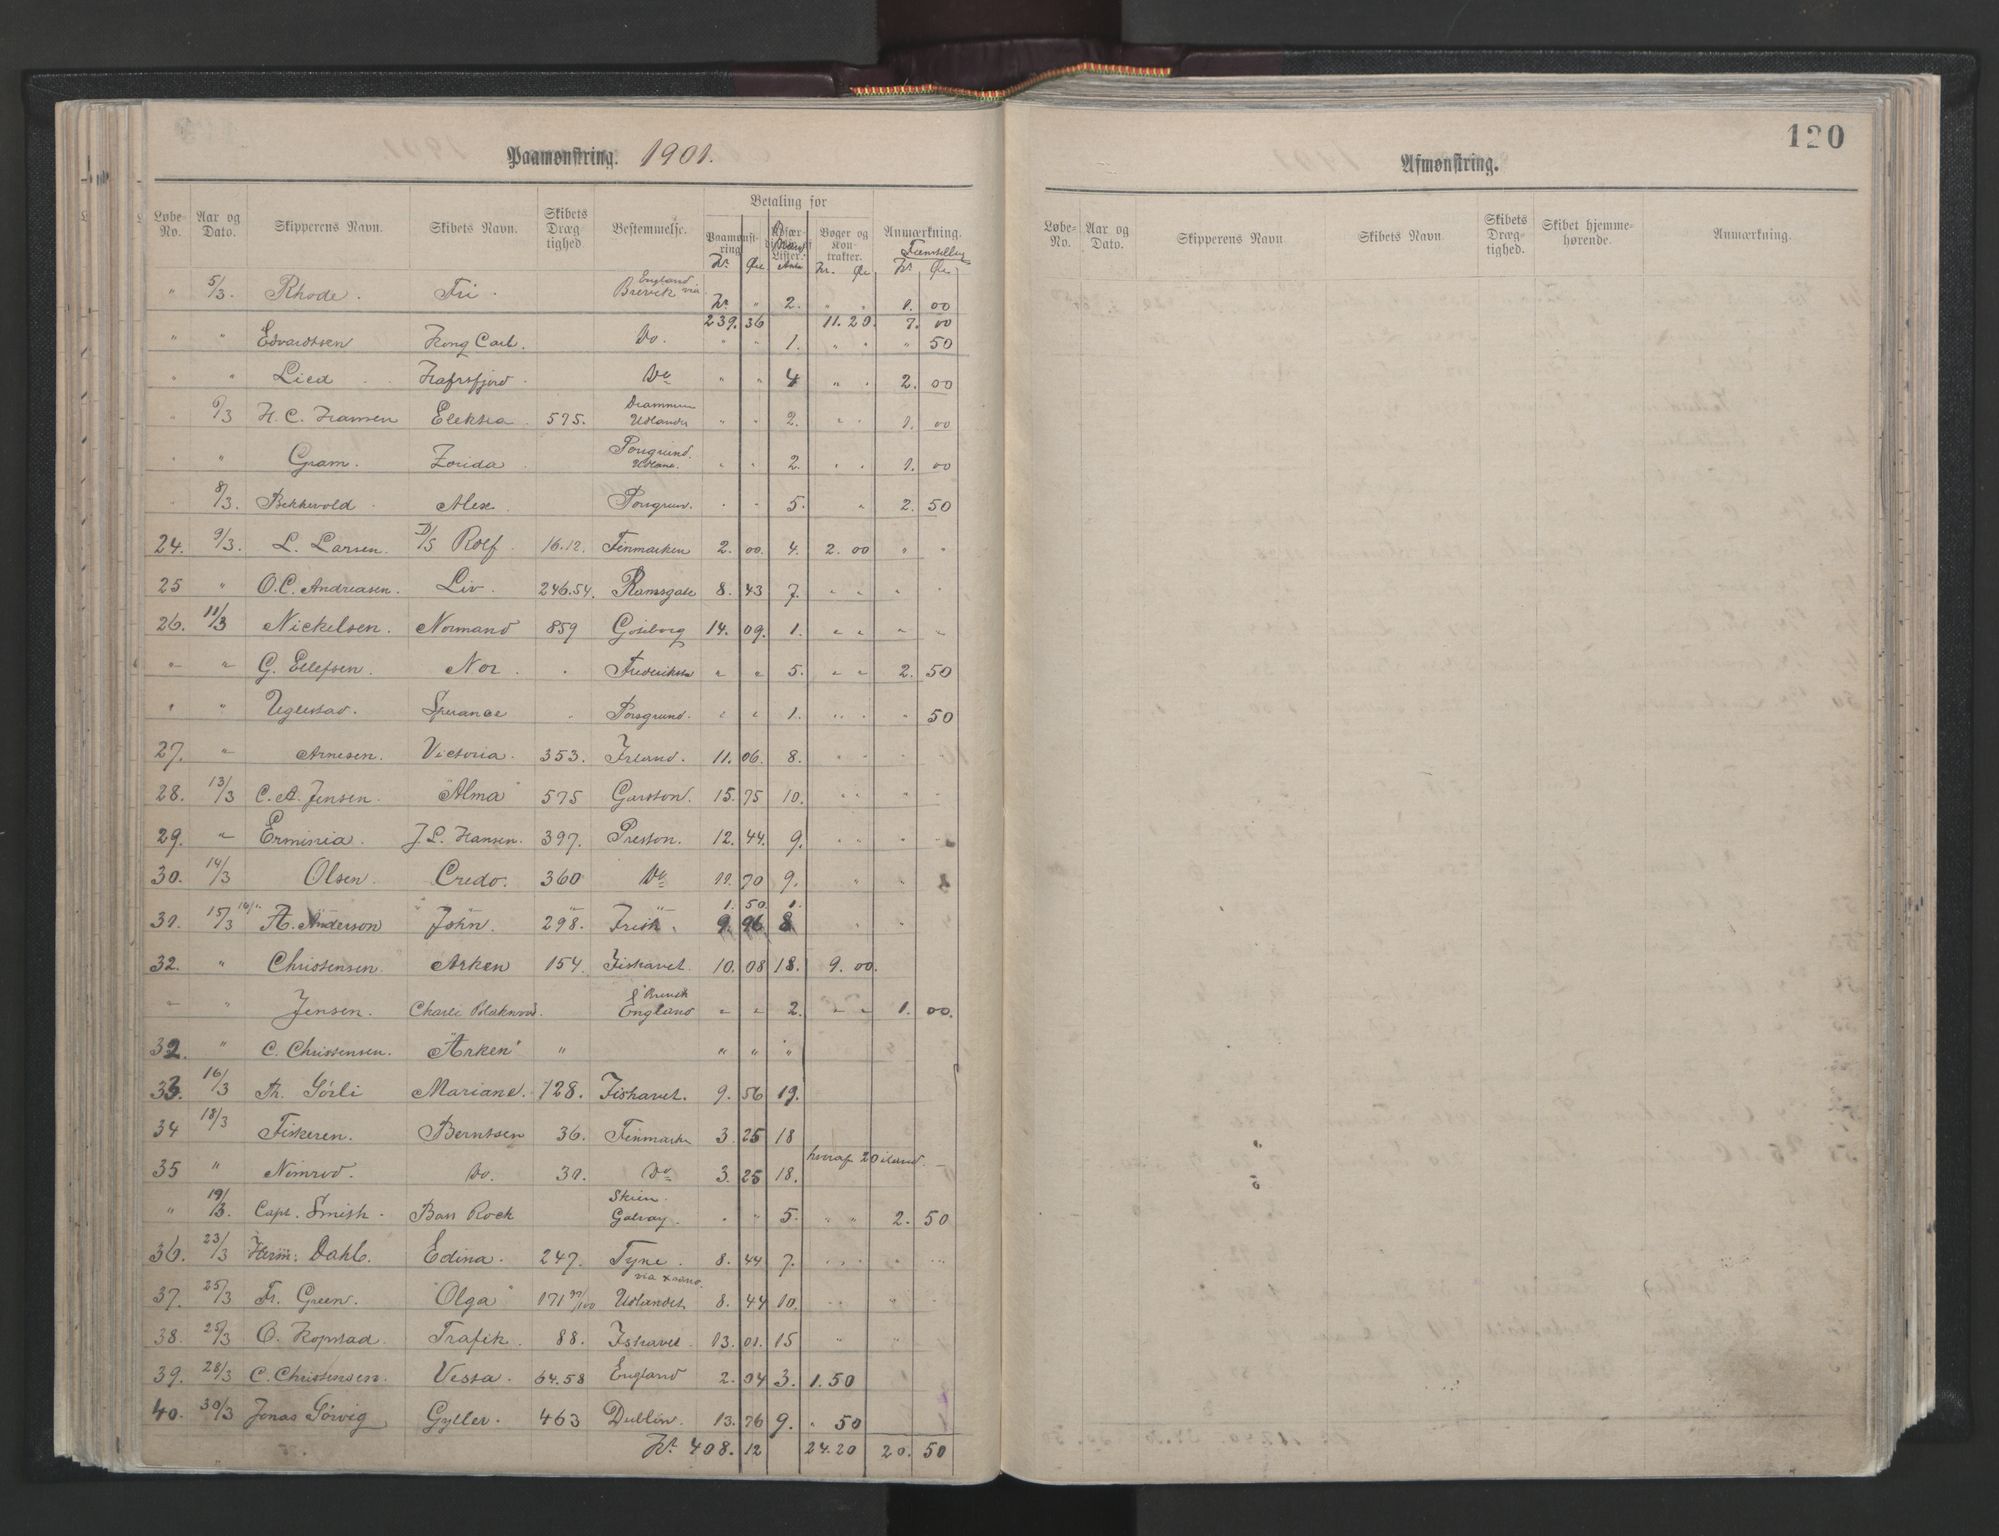 Paamonstring. 1901.
Løbe-No. Aar og Dato. Skipperens Navn. Skibets Navn. Skibets Dræg-tighed Bestemmelse. Betaling for Paamonst-ring Lister. Bøger og Kon-trakter. Anmærkning.
Kr. Øre Kr. Øre Kr. Øre
" 5/3. Rhode. Fri. England Brevik via Kr " 2. " " 1. 00
239. 36 11. 20. 7. 00
" " Edvardsen Kong Carl. Do. " " 1. " " " 50
" " Lied Hafrsfjord. Do " " 4 " " 2. 00
" 6/3 H. C. Hansen Elektra. 575. Drammen Udlandet " " 2. " " 1. 00
" " Gram. Zorida Porsgrund. Udland. " " 2. " " 1. 00
" 8/3. Bekkevold Alex. Porsgrun. " " 5. " 2. 50
24. 9/3. L. Larsen. D/S Rolf. 16.12. Finmarken 2. 00. 4. 2. 00 " "
25 " O. C. Andreasen. Liv. 246.54. Ramsgate 8. 43 7. " " " "
26. 11/3 Nickelsen. Normand 859 Goteborg 14. 09. 1. " " " "
" " G. Ellefsen. Nor. " Frederiksta " " 5. " " 2. 50
" " Uglestad. Sperance " Porsgrund. " " 1. " " " 50
27. " Arnesen. Victoria. 353. Irland. 11. 06. 8. " " " "
28. 13/3 C. A. Jensen. "Alma" 575 Garston. 15. 75 10. " " " "
29. " Erminia. J. L. Hansen. 397. Preston. 12. 44. 9. " " "
30. 14/3 Olsen. Credo. 360 Do 11. 70 9. " "
1. 50. 1.
31. 15/3 16/" A. Anderson "John". 298. Irish. 9. 96 8 " "
32. " Christensen Arken 154. Ishavet. 10. 08 18. 9. 00.
" " Jensen. Charli England " " 2. " " 1. 00.
32. " C. Christensen. "Arken" " " " "
33. 16/3 Th. Sörli Mariane. 128. Ishavet. 9. 56 19.
34 18/3 Fiskeren. Berntsen 36. Finmarke 3. 25 18
35 " Nimrod. Do. 30. Do 3. 25 18. hvoraf 20 iland.
" 19/3. Capt. Smith. Ban Rock Skien. Galvay. " " 5. " " 2. 50
36. 23/3 Herm. Dahl. Edina. 247. Tyne. 8. 44 7. " " " "
37. 25/3 Fr. Green. "Olga" 171 92/100 via Udlandet 8. 44 10. " " "
38. 25/3 O. Kopstad. Trafik. 88. Ishavet. 13. 01. 15 " "
39. 28/3 C. Christensen. Vesta. 64.58 England 2. 04 3. 1. 50
40. 30/3 Jonas Sörvig Gyller. 463 Dublin. 13. 76 9. " 50
Kr 408. 12 24. 20 20. 50
120
Afmønstring.
Løbe-No. Aar og Dato. Skipperens Navn Skibets Navn. Skibets Dræg-tighed. Skibet hjemme-hørende. Anmærkning.